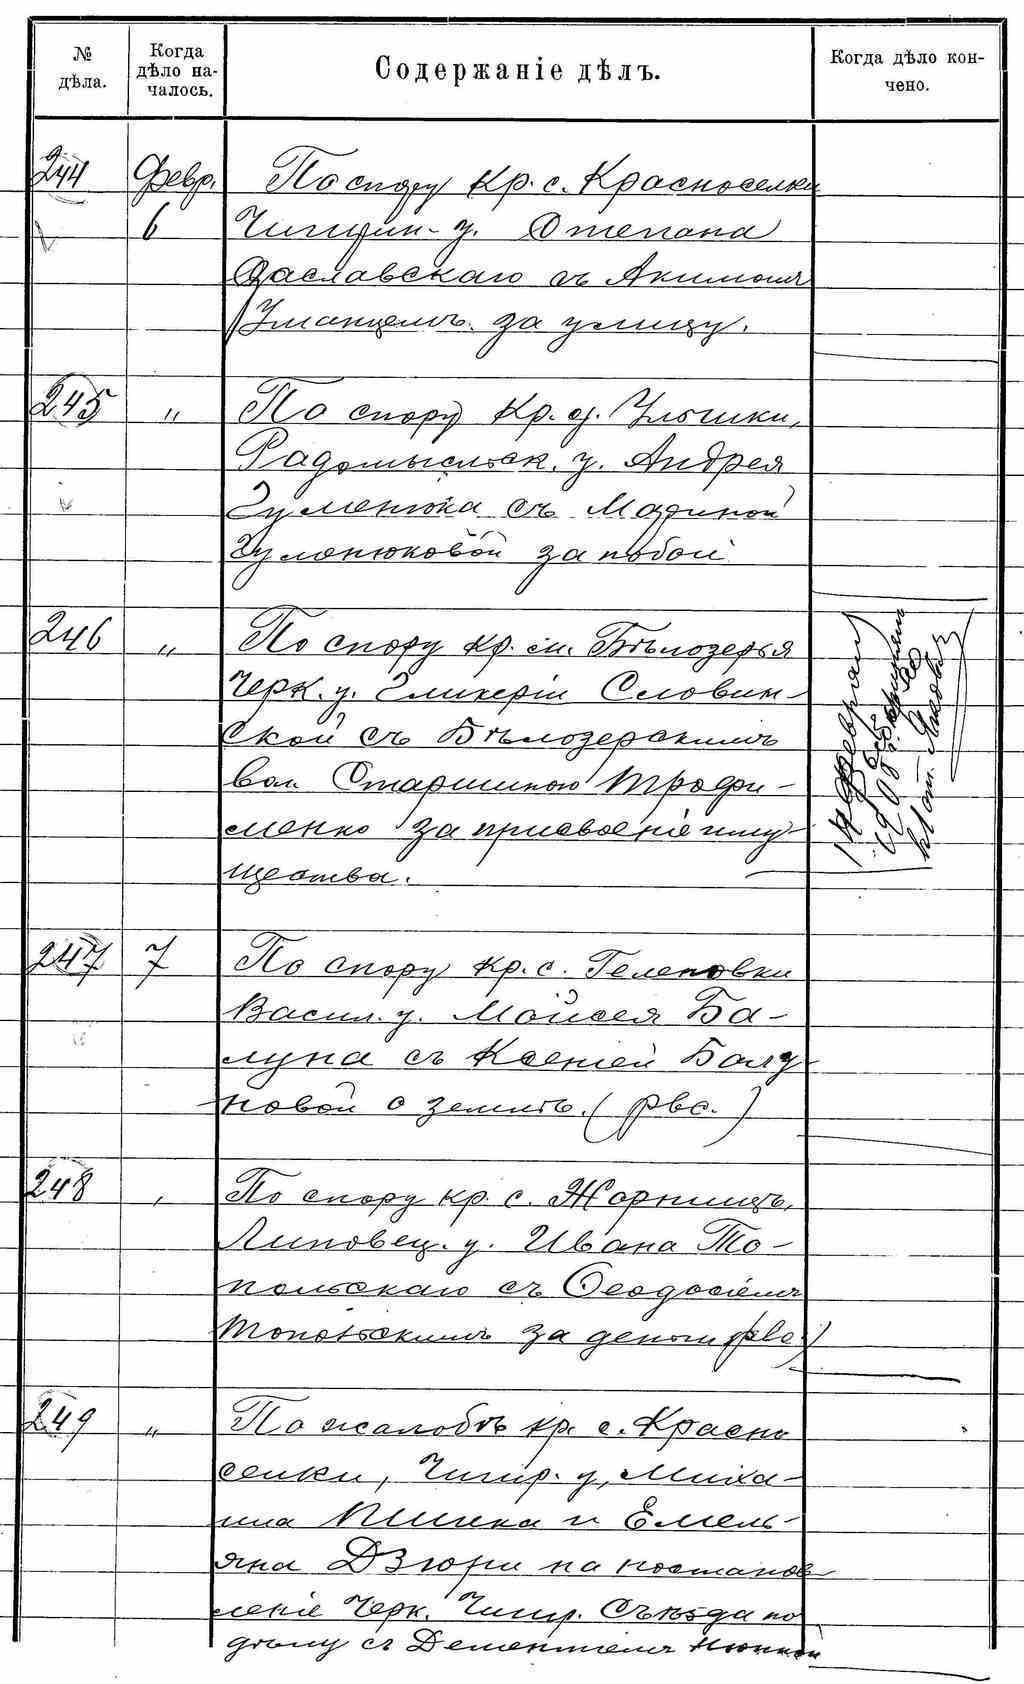 №
дѣла.
Когда
дѣло на-
чалось.
Содержаніе дѣлъ.
Когда дѣло кон-
чено.
244 Февр. По спору кр. с. Красноселки
6 Чигирин- у. Степана
Заславскаго съ Акимомъ
Уманцемъ за улицу.
245 " По спору кр. д.
Радомысльск. у. Андрея
Гуменюка съ Мариной
Гуменюковой за побои
246 " По спору кр. м. Бѣлозерья
Черк. у. Гликеріи Словин-
ской съ Бѣлозерскимъ
вол. Старшиною Трофи-
менко за присвоеніе иму-
щества.
14 февраля
1908 г.
к Пот.
247 7 По спору кр. с. Телеповки
Васил. у. Мойсея Ба-
луна съ Ксеніей Балу-
новой о землѣ. (рвс.)
248 , По спору кр. с. Жорнищъ,
Липовец. у. Ивана То-
польскаго съ Ѳеодосіемъ
Топольскимъ за деньги (рвс.)
249 " По жалобѣ кр. с. Красно
селки, Чигир. у, Миха-
ила и Емель-
яна Дзюри на постанов-
леніе Черк. Чигир. Съѣзда по
дѣлу съ Дементіемъ